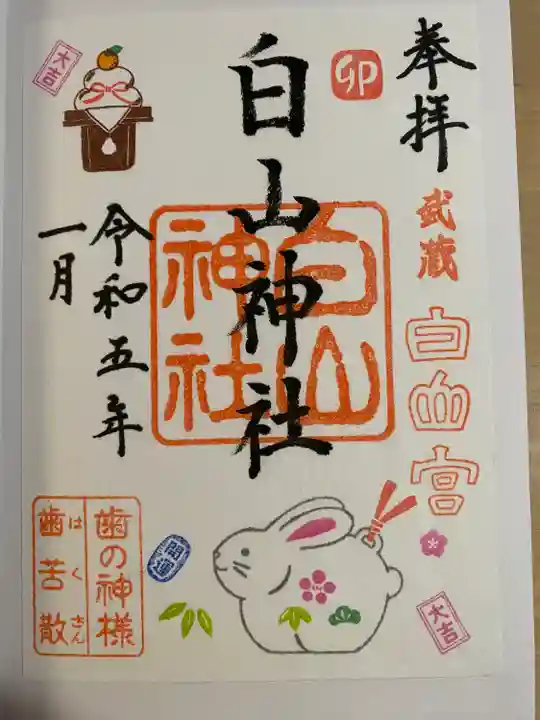 奉拝
武蔵
白山宮
卯
白山神社
白山
神社
令和五年
一月
大吉
歯の神様
はくさん
歯苦散
開運
大吉